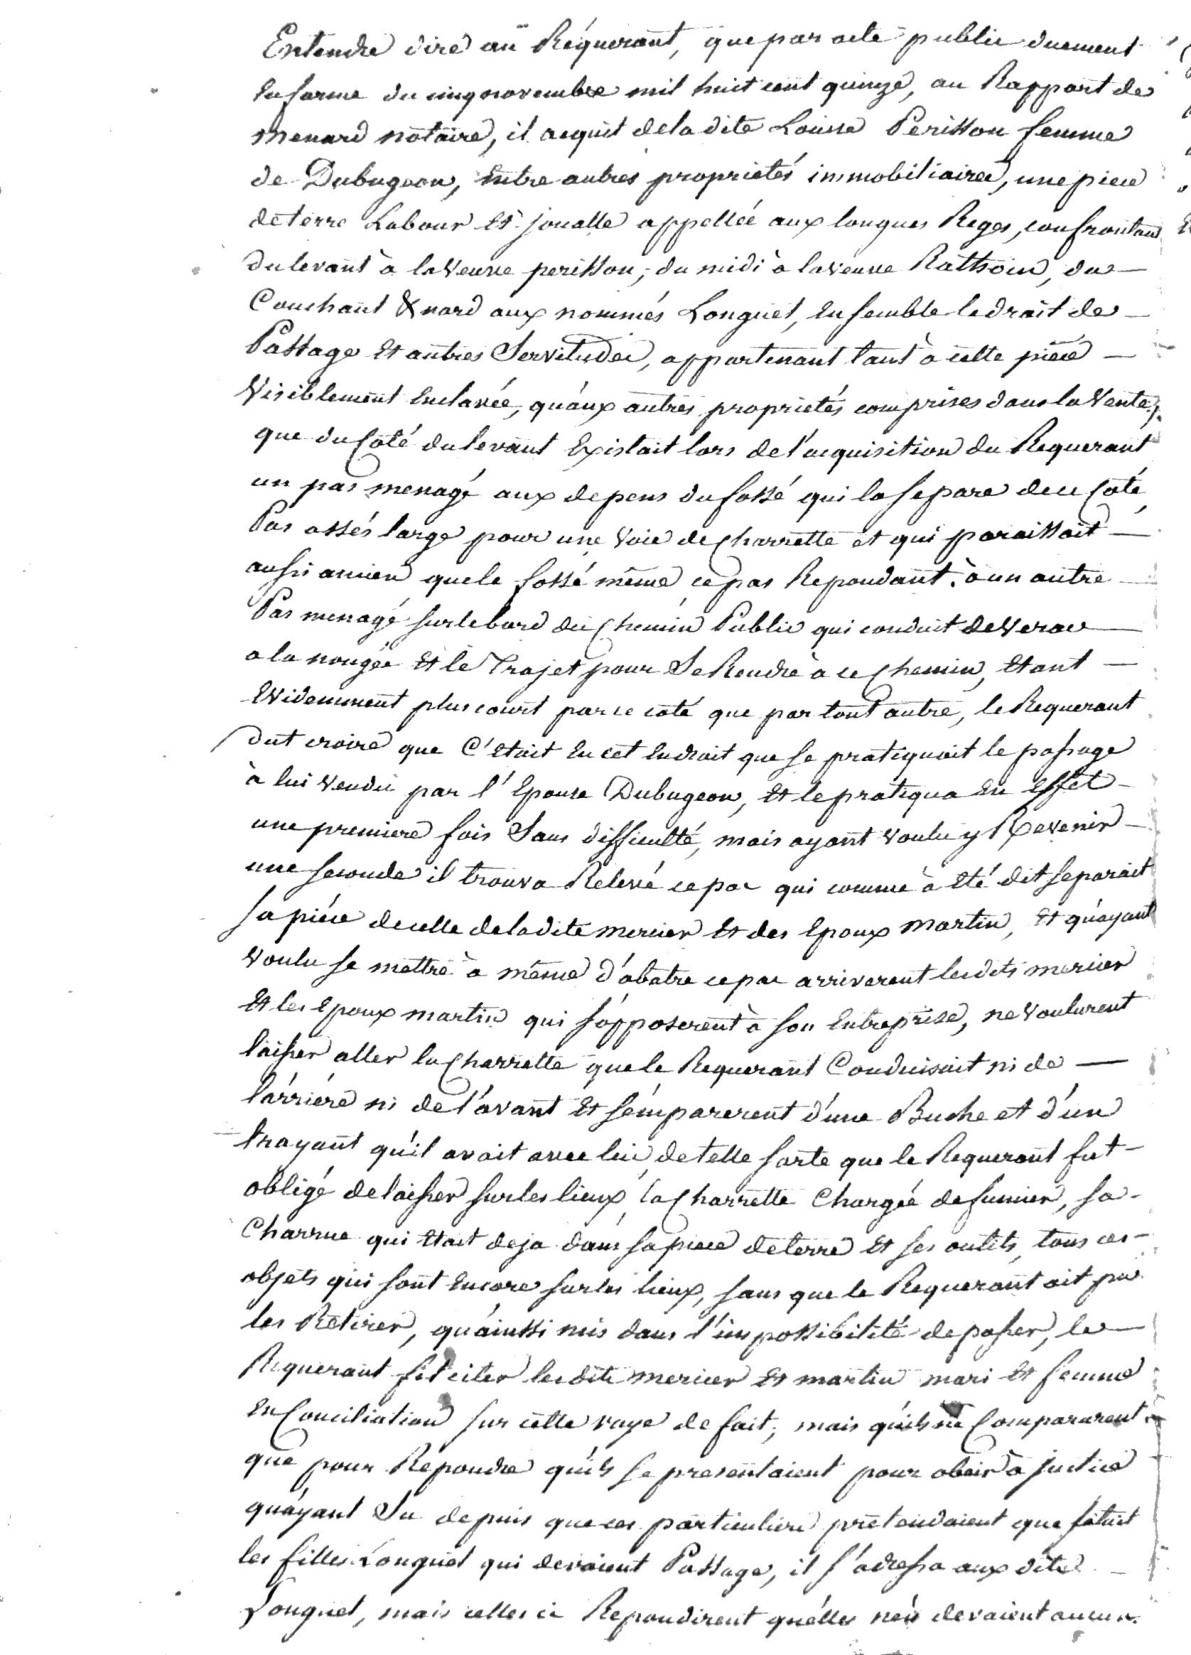 Entendre dire au Réquerant, que par acte public duement
En forme du cinq novembre mil huit cent quinze, au Rapport de
Menard notaire, il acquit de la dite Louise Perisson femme
de Dubugeon, Entre autres proprietés immobiliaires, une piece
de terre Labour Et joualle appelléé aux longues Reges, confrontant
du levant à la Veuve perisson; du midi à la veuve Rathouin, du
Couchant & nord aux nommés Longuet, Ensemble le droit de
Passage Et autres Servitudes, appartenant tant à cette piéce
Visiblement Enclavée, qu'aux autres proprietés comprises dans la Vente;
que du Coté du levant Existait lors de l'acquisition du Requerant
un pas menagé aux depens du fossé qui la separe de ce Coté,
Pas assés large pour une Voie de Charrette et qui paraissait
aussi ancien que le fossé même, ce pas Repondant à un autre
Pas menagé sur le bord du Chemin Public qui conduit de Verac
a la nougée Et le Trajet pour Se Rendre à ce Chemin, Etant
Evidemment plus court par ce coté que par tout autre, le Requerant
dut croire que C'était En cet Endroit que se pratiquait le passage
à lui Vendu par l'Epouse Dubugeon, Et le pratiqua En Effet
une premiere fois Sans difficulté, mais ayant voulu y Revenir
une seconde il trouva Relevé ce pas qui comme à été dit separait
sa piéce de celle de la dite mercier Et des Epoux Martin, Et qu'ayant
Voulu se mettre à même d'abatre ce pas arriverent lesdits mercier
Et les Epoux martin qui s'opposerent à son Entreprise, ne Voulurent
laisser aller la Charrette que le Requerant Conduisait ni de
l'arriére ni de l'avant Et s'emparerent d'une Buche et d'un
trayant qu'il avait avec lui, de telle sorte que le Requerant fut
obligé de laisser sur les lieux la Charrette Chargée de fumier, sa
Charrue qui Etait deja dans sa piece de terre Et ses outils, tous ces
objets qui sont Encore sur les lieux, sans que le Requerant ait pu
les Retirer, qu'ainssi mis dans l'impossibilité de passer, le
Requerant fit citer lesdits mercier Et martin mari Et femme
En Conciliation sur cette voye de fait, mais qu'ils ne Comparurent
que pour Repondre qu'ils se presentaient pour obéir à justice
qu'ayant Su depuis que ces particuliers pretendaient que s'était
les filles Longuet qui devaient Passage, il s'adressa aux dites
Longuet, mais celles ci Repondirent qu'elles n'en devaient aucun.